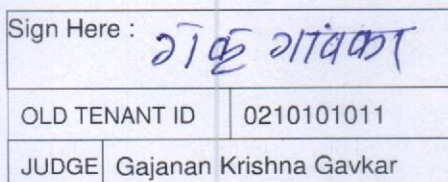 Sign Here : ग कृ गांवकर
OLD TENANT ID 0210101011
JUDGE Gajanan Krishna Gavkar